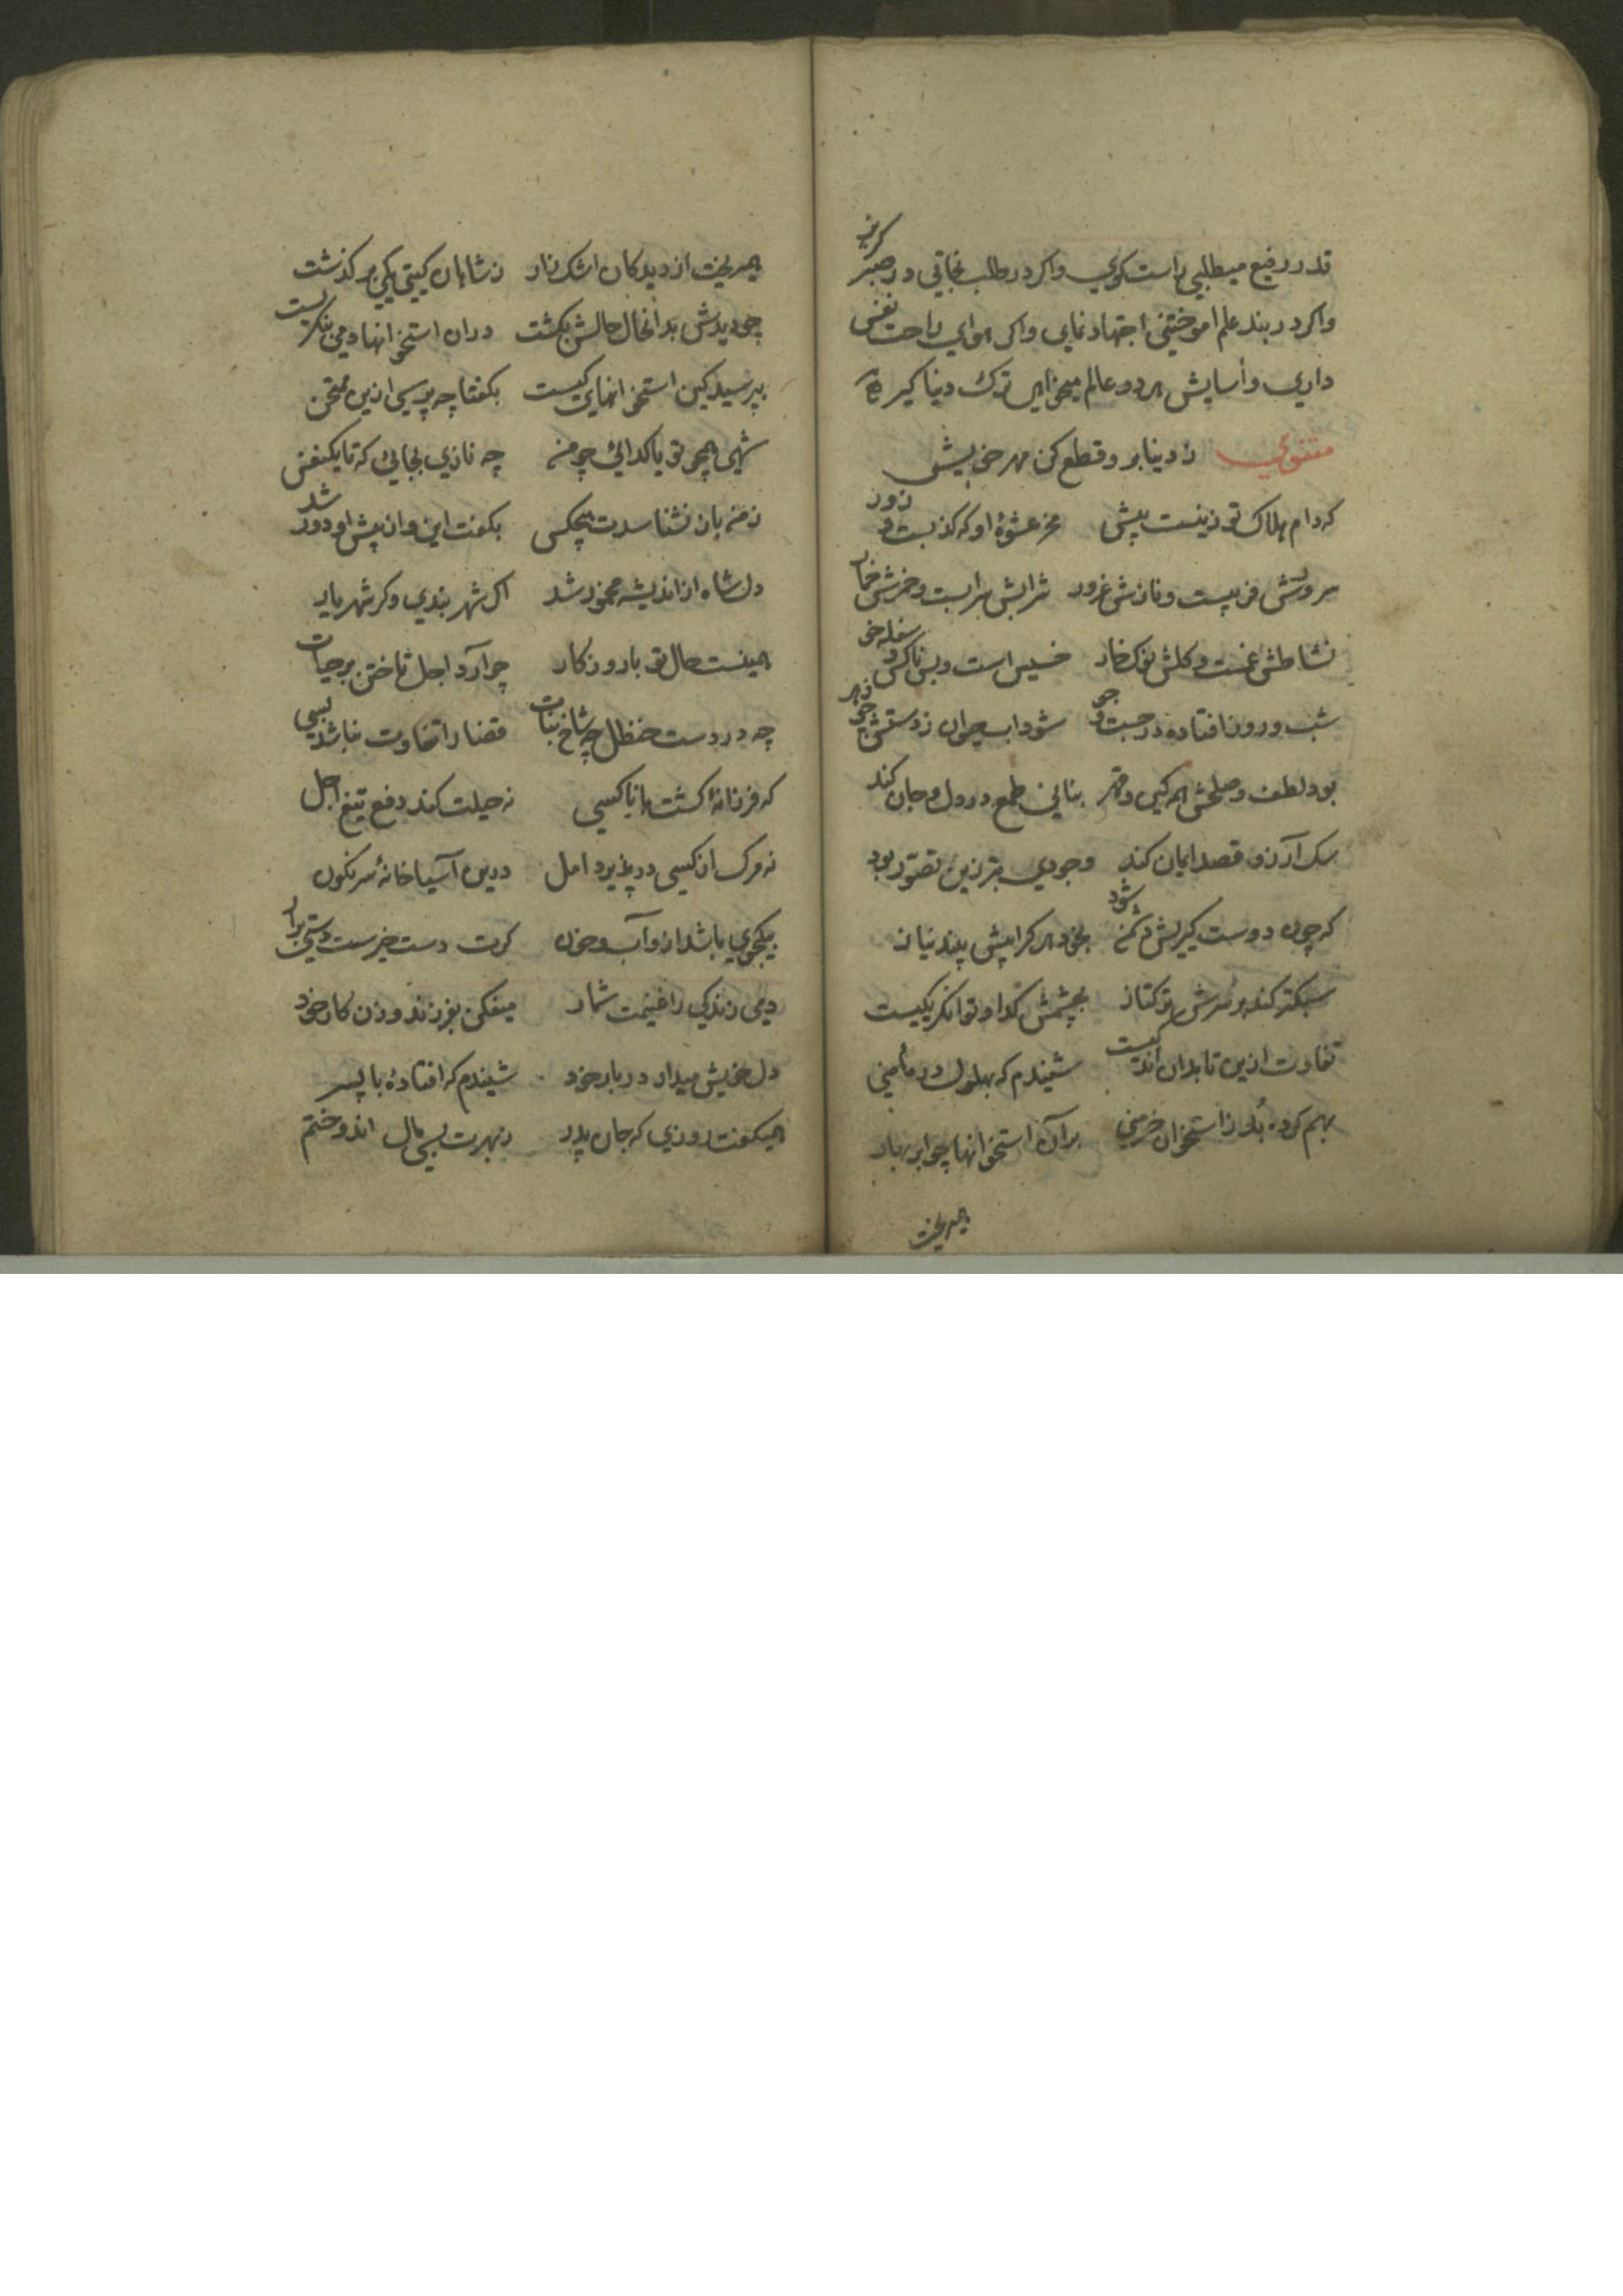 قدر رفیع میطلبی راست کوی واکر در طلب نجاتی در صبر کریز
واکر در بند علم اموختنی اجتهاد نمای واکر هوای راحت نفس
داری وآسایش هر دو عالم میخواهی ترک دنیا کیر
مثنوی ز دنیا برو قطع کن مهر خویش
که دام هلاک تو زینست پیش مخر عشوۀ او که کذبست و زور
سروش فریبست و نازش غرور شرابش سرابست و خمرش خمار
نشاطش غمست و کلش نوک خار خسیس است و بس ناکس و سفله خو
شب و روز افتاده در جست و جو شود اب حیوان ز دستش چو زهر
بود لطف و صلحش همه کین و قهر بنانی طمع در دل و جان کند
سک آرزو قصد ایمان کند وجودی بتر زین تصور بود
که چون دوست کیریش دشمن شود بخود هر کرا پیش بیند نیاز
سبکتر کند بر سرش ترکتاز بچشمش کدا و توانکر یکیست
تفاوت ازین تا بدان اندکیست شنیدم که بهلول در مأمنی
بهم کرده بد ز استخوان خرمنی بران استخوانها چو ابر بهار
همیریخت
همیریخت از دیدکان اشک زار ز شاهان کیتی یکی بر کذشت
چو دیدش بدانحال حالش بکشت دران استخوانها دمی بنکریست
بپرسید کین استخوانهای کیست بکفتا چه پرسی ازین ممتحن
شهی همچو تو یا کدائی چو من چه نازی بجائی که تا یکنفس
ز من بازنشناسدت هیچکس بکفت این و از پیش او دور شد
دل شاه از اندیشه محمود شد اکر شهر بندی وکر شهریار
همینست حال تو با روزکار چو آرد اجل تاختن بر حیات
چه در دست حنظل چه شاخ نبات قضا را تفاوت نباشد بسی
که فرزانۀ کشت یا ناکسی نه حیلت کند دفع تیغ اجل
نه مرک از کسی در پذیرد امل درین آسیاخانۀ سرنکون
بیکجوی باشد ازو آب و خون کرت دست خیرست دستی برار
دمی زندکی را غنیمت شمار میفکن بفرزند و زن کار خود
دل خویش میدار در بار خود شنیدم که افتادۀ با پسر
همیکفت روزی که جان پدر ز بهرت بسی مال اندوختم